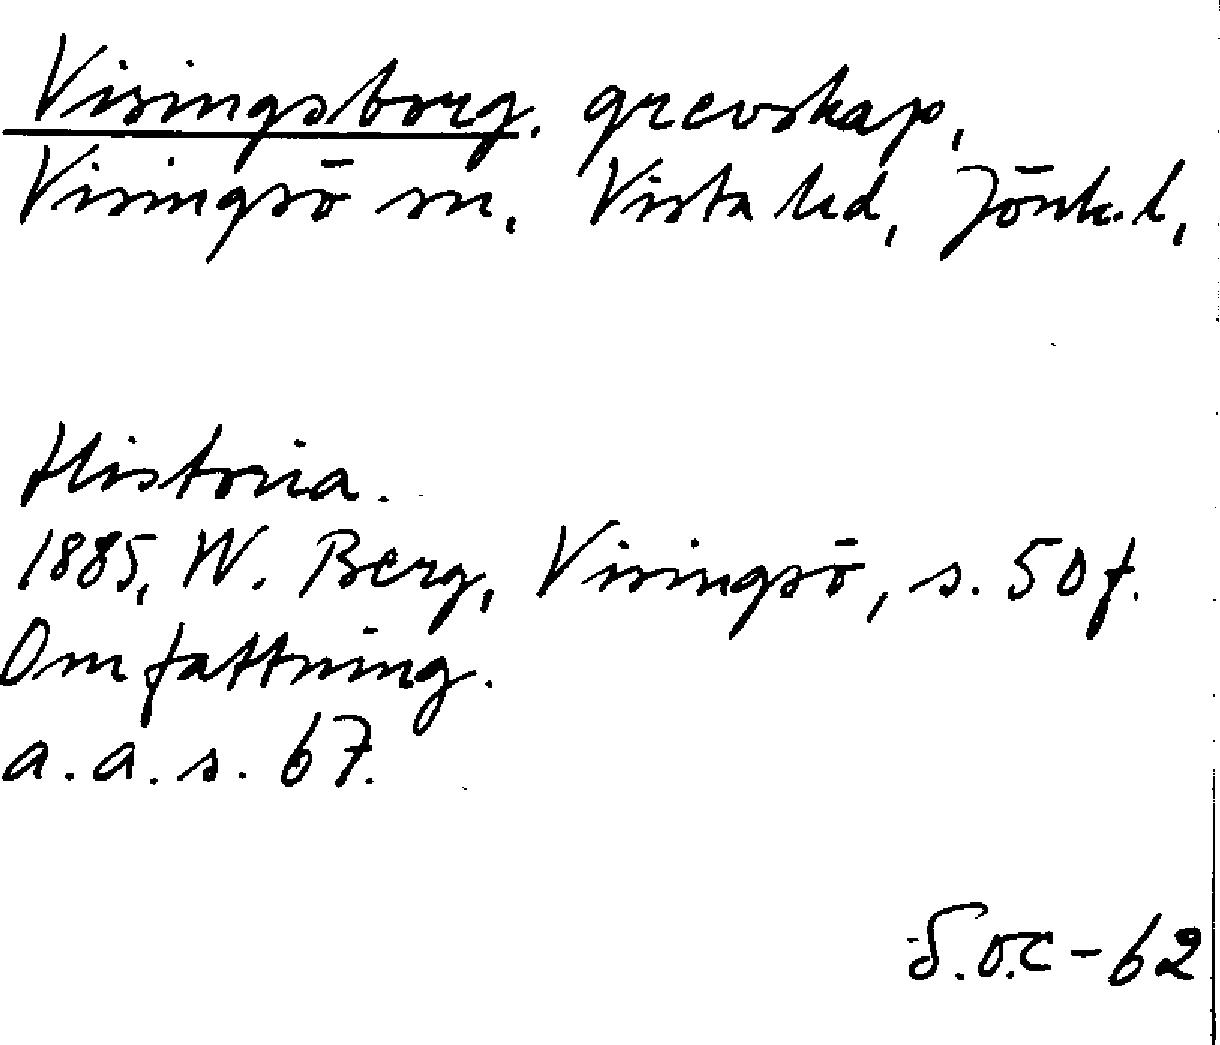 Visingsborg. grevskap,
Visingsö sn, Vista hd, Jönk. l,
Historia.
1885, W. Berg, Visingsö, s. 50 f.
Omfattning.
a. a. s. 67.
S.O.C - 62